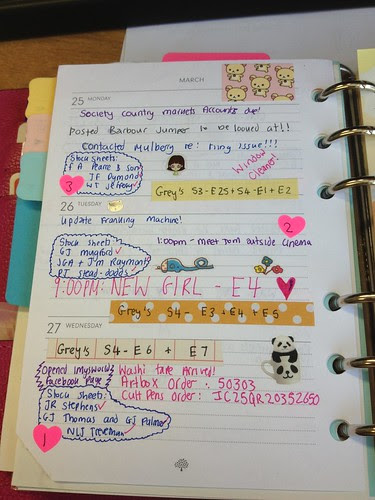 MARCH
25 MONDAY
Society country markets Accounts due!
Posted Barbour Jumper to be looked at!!
Contacted Mulberry re: ring issue!!!
Stock sheets:
F A Pearce & Son
JF Dymond
WT Jeffroy
Window
Cleaner!
3
Grey's S3-E25+S4-E1+E2
26 TUESDAY
2
Update Franking Machine!
Stock sheets
GJ Mugford
JGA + J'm Raymont
PJ Stead-dodds
1:00pm - meet Tom outside Cinema
9:00PM: NEW GIRL - E4
Grey's S4- E3+E4+E5
27 WEDNESDAY
Grey's S4-E6 + E7
Opened imysworld
Facebook Page
Washi tape Arrived!
Artbox Order : 50303
Cult Pens order: IC25QR20352650
Stock sheets:
JR Stephens
GJ Thomas and GJ Palmer
NLJ Treneman
1